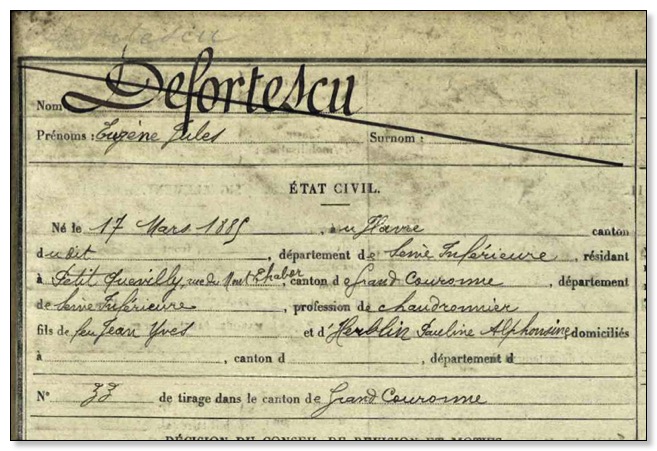 Defortescu
Nom Defortescu
Prénoms : Eugène Jules Surnom :
ÉTAT CIVIL.
Né le 17 Mars 1885, au Havre canton
du dit, département de Seine Inférieure, résidant
à Petit Quevilly, rue du Mont Thabor, canton de Grand Couronne, département
de Seine Inférieure, profession de chaudronnier
fils de feu Jean Yves et d'Herblin Pauline Alphonsine, domiciliés
à , canton d , département d
N° 33 de tirage dans le canton de Grand Couronne
DÉCISION DU CONSEIL DE RÉVISION ET MOTIFS